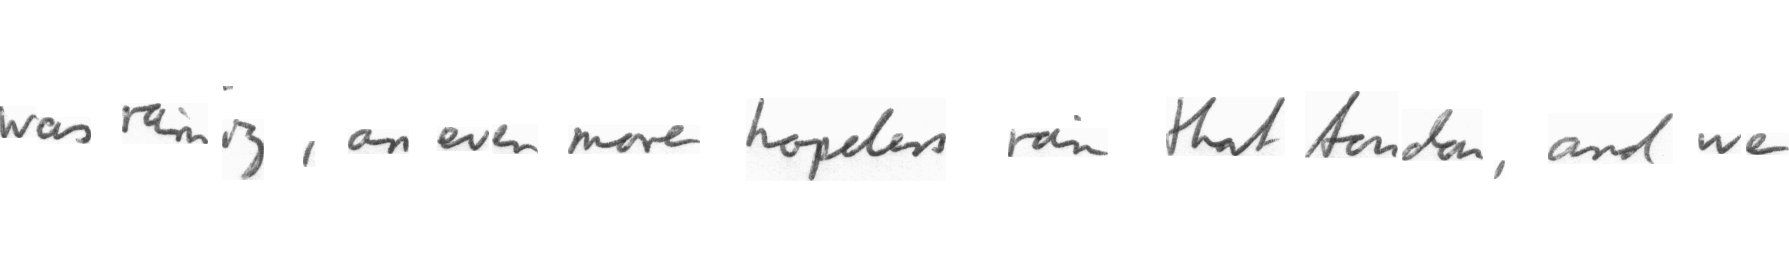 was raining, an even more hopeless rain that London, and we